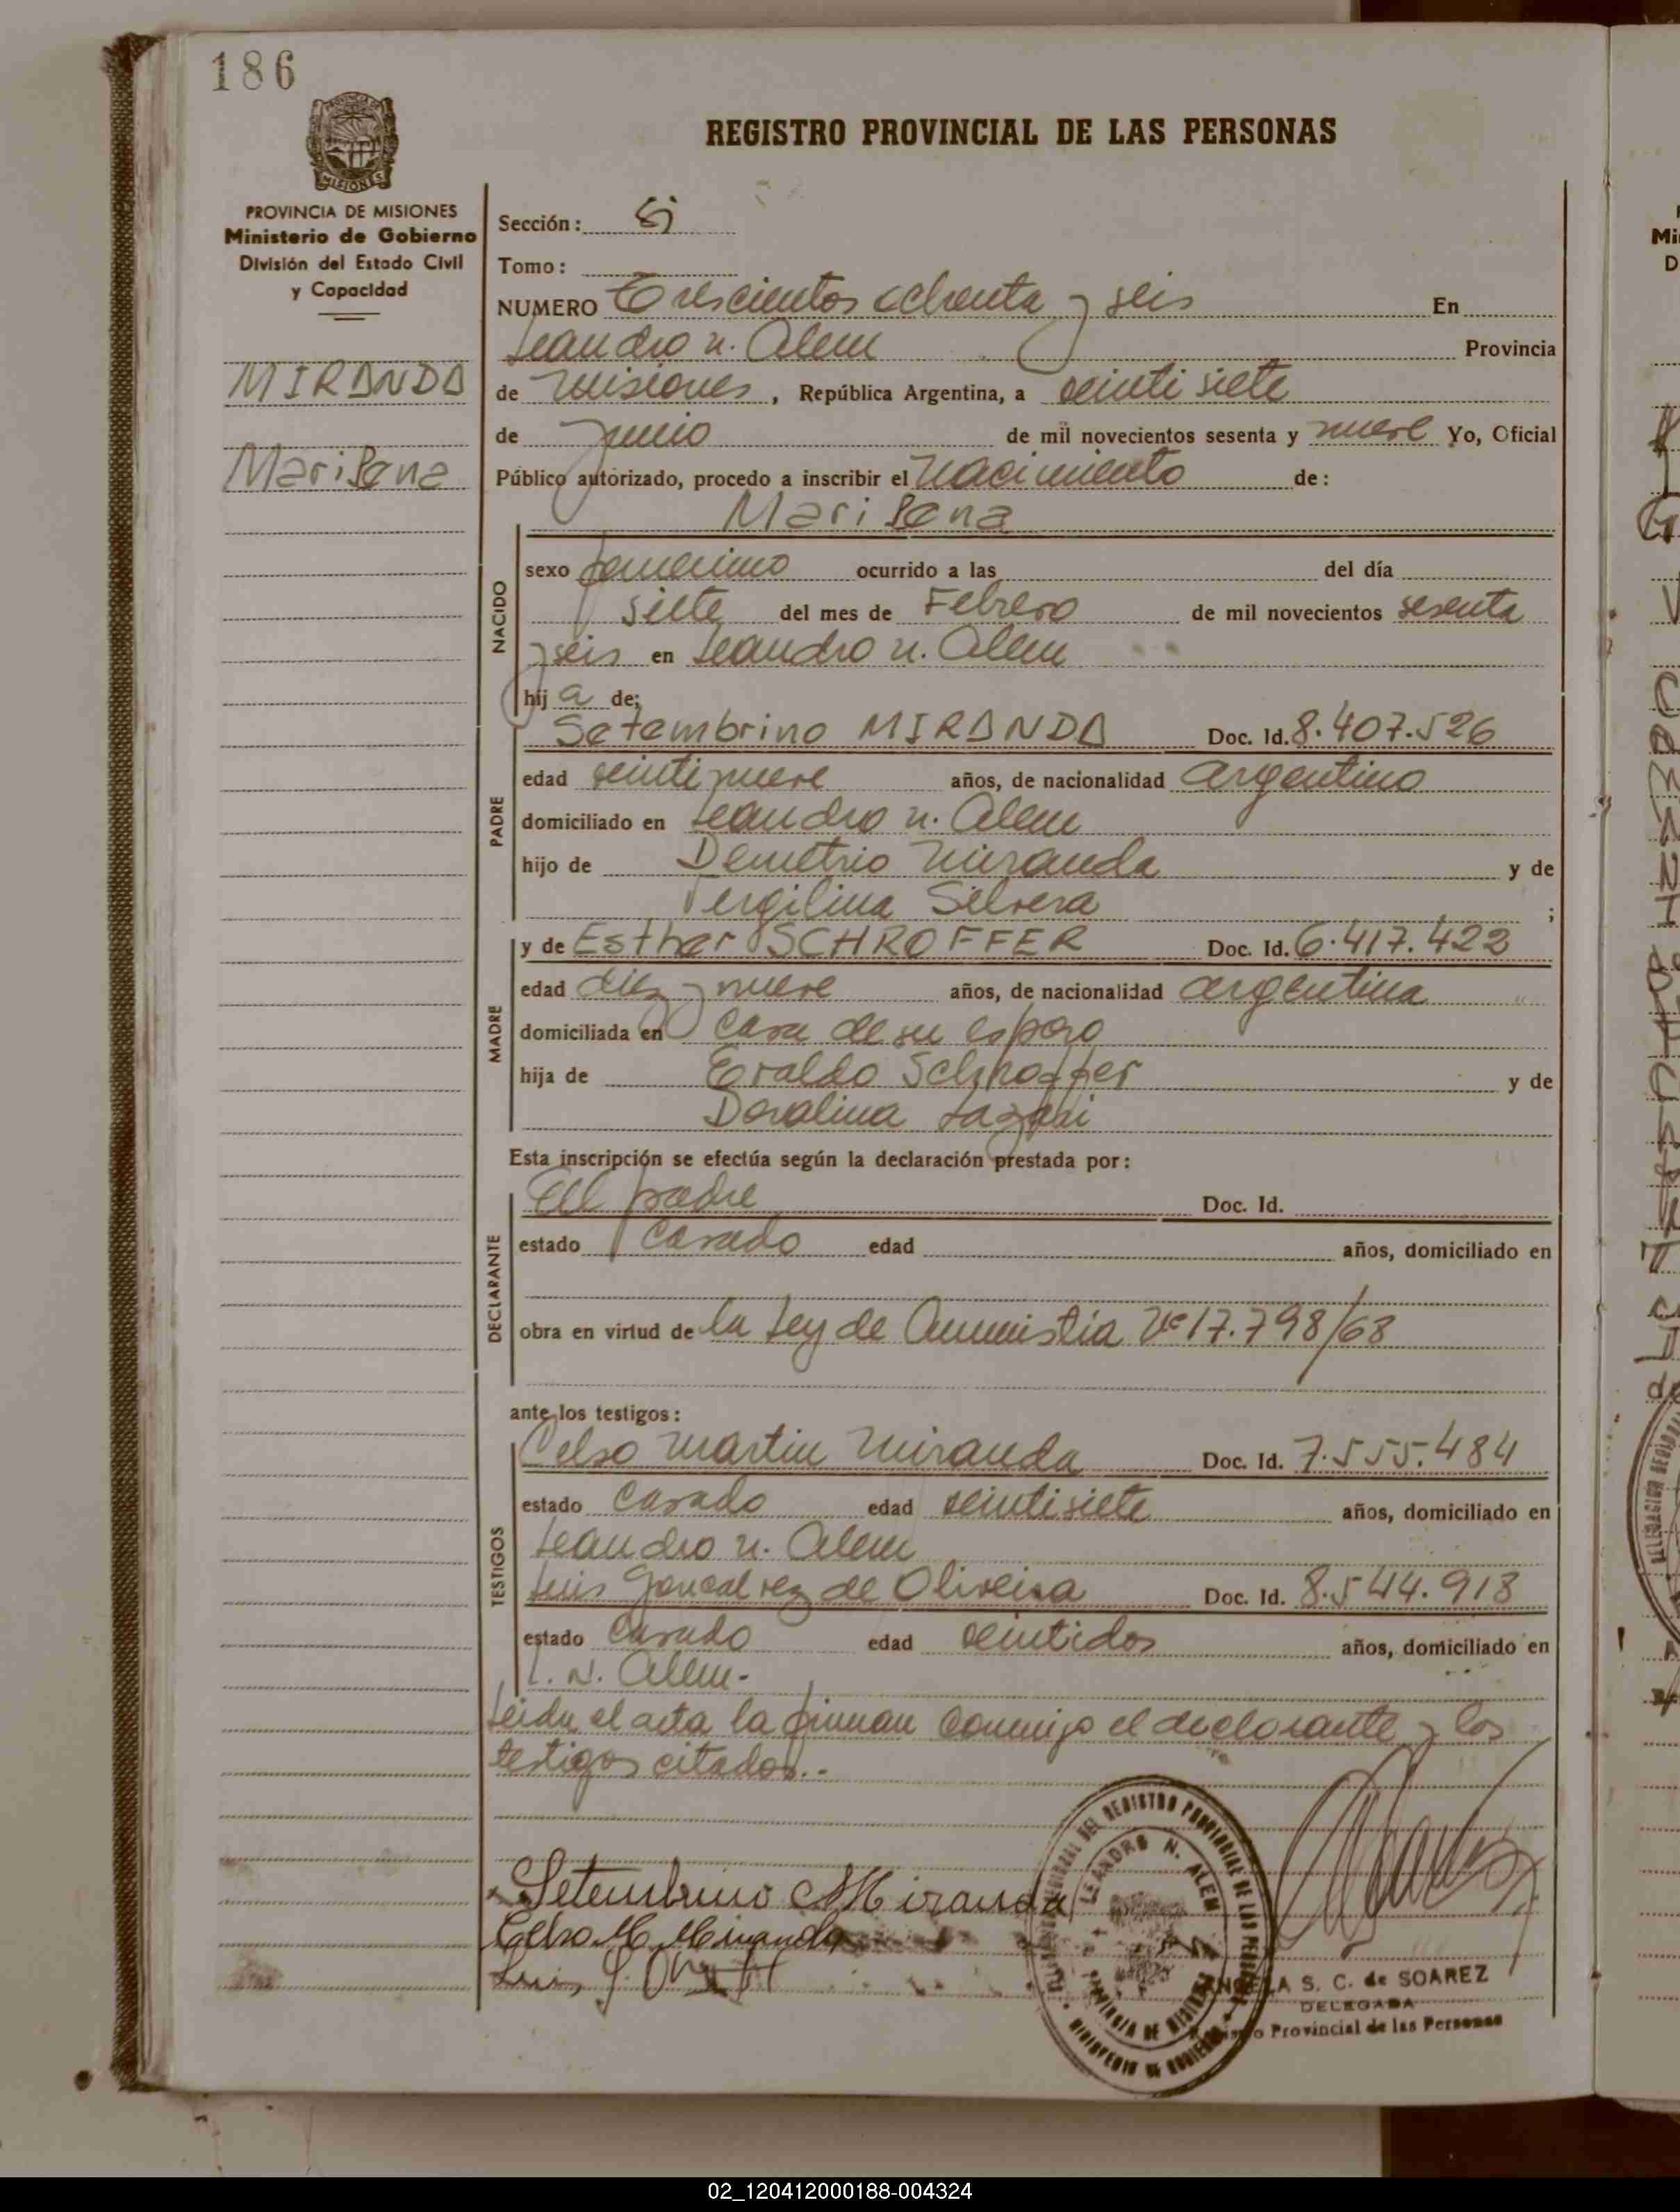 186
REGISTRO PROVINCIAL DE LAS PERSONAS
MISIONES
PROVINCIA DE MISIONES
Ministerio de Gobierno
División del Estado Civil
y Capacidad
MIRANDA
Marilena
Sección:
Tomo:
NUMERO Trescientos ochenta y seis En
Leandro n. Alem Provincia
de Misiones, República Argentina, a veintisiete
de Junio de mil novecientos sesenta y nueve Yo, Oficial
Público autorizado, procedo a inscribir el Nacimiento de:
Marilena
NACIDO
sexo femenino ocurrido a las del día
siete del mes de Febrero de mil novecientos sesenta
y seis en Leandro n. Alem
hija de;
PADRE
Setembrino MIRANDA Doc. Id. 8.407.526
edad veintinueve años, de nacionalidad argentino
domiciliado en Leandro n. Alem
hijo de Demetrio Miranda y de
Vergilina Silvera ;
MADRE
y de Esther SCHROFFER Doc. Id. 6.417.422
edad diez y nueve años, de nacionalidad argentina
domiciliada en casa de su esposo
hija de Eraldo Schroffer y de
Doralina
Esta inscripción se efectúa según la declaración prestada por:
DECLARANTE
El padre Doc. Id.
estado Casado edad años, domiciliado en
obra en virtud de la Ley de Amnistia Nº 17.798/68
ante los testigos:
TESTIGOS
Celso Martin Miranda Doc. Id. 7.555.484
estado Casado edad veintisiete años, domiciliado en
Leandro n. Alem
Luis Goncalvez de Oliveira Doc. Id. 8.544.913
estado Casado edad veintidos años, domiciliado en
L. N. Alem.-
Leida el acta la firman conmigo el declarante y los
testigos citados.-
Setembrino M Miranda
Celso M Miranda
Luis G.
LEANDRO N. ALEM
PROVINCIA DE MISIONES
MINISTERIO DE GOBIERNO
S. C. de SOAREZ
DELEGADA
Provincial de las Personas
02_120412000188-004324